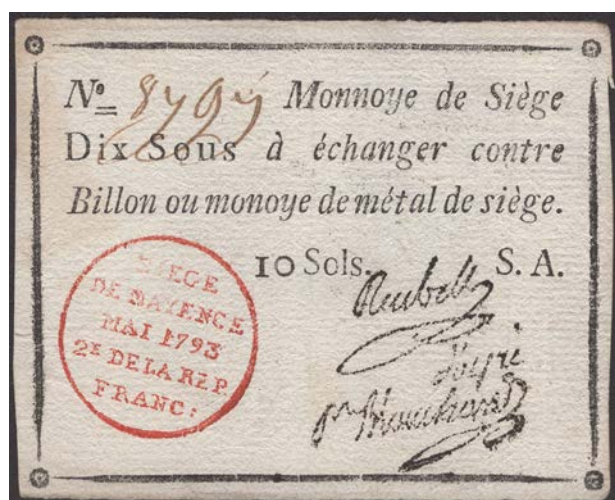 Nº 8797 Monnoye de Siège
Dix Sous à échanger contre
Billon ou monoye de métal de siège.
10 Sols. S. A.
SIEGE
DE MAYENCE
MAI 1793
2E DE LA RÉP.
FRANC:
Reubell